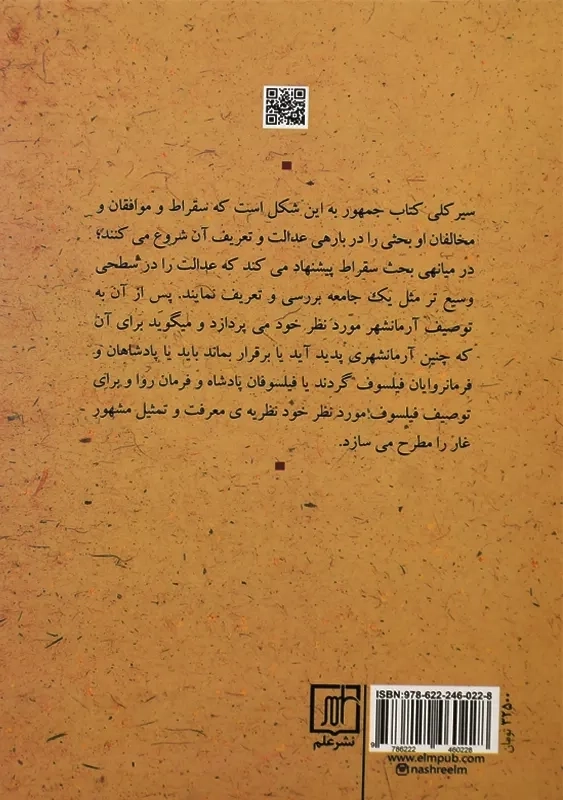 سیر کلی کتاب جمهور به این شکل است که سقراط و موافقان و
مخالفان او بحثی را در بارهی عدالت و تعریف آن شروع می کنند؛
در میانهی بحث سقراط پیشنهاد می کند که عدالت را در سطحی
وسیع تر مثل یک جامعه بررسی و تعریف نمایند. پس از آن به
توصیف آرمانشهر مورد نظر خود می پردازد و میگوید برای آن
که چنین آرمانشهری پدید آید یا برقرار بماند باید یا پادشاهان و
فرمانروایان فیلسوف گردند یا فیلسوفان پادشاه و فرمان روا و برای
توصیف فیلسوف مورد نظر خود نظریه ی معرفت و تمثیل مشهور
غار را مطرح می سازد.
نشر علم
ISBN:978-622-246-022-8
9 786222 460228
www.elmpub.com
nashreelm
۳۲۵۰۰ تومان